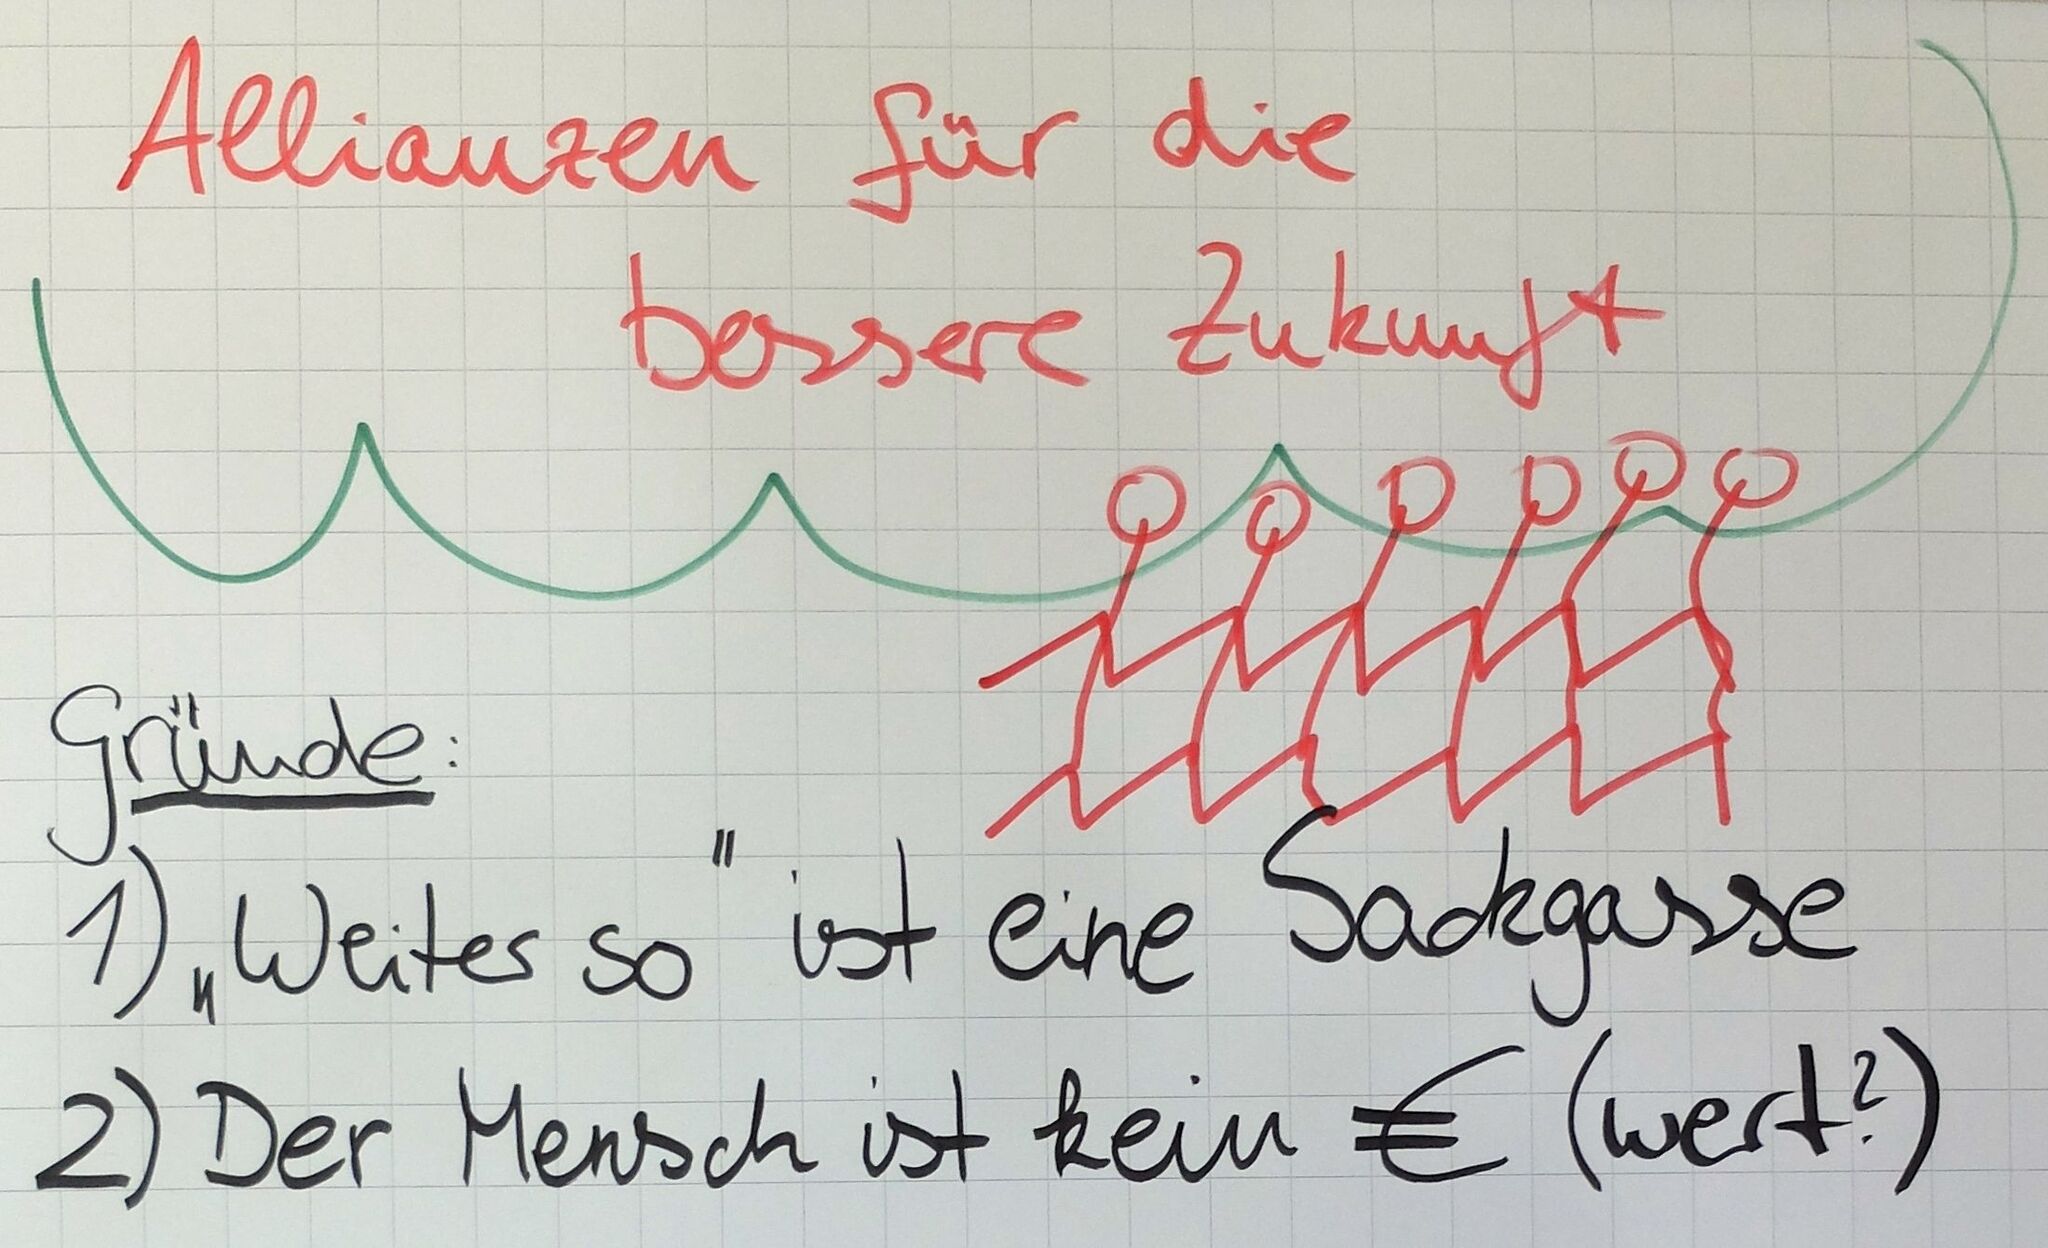 Allianzen für die
bessere Zukunft
Gründe:
1) „Weiter so" ist eine Sackgasse
2) Der Mensch ist kein € (wert?)